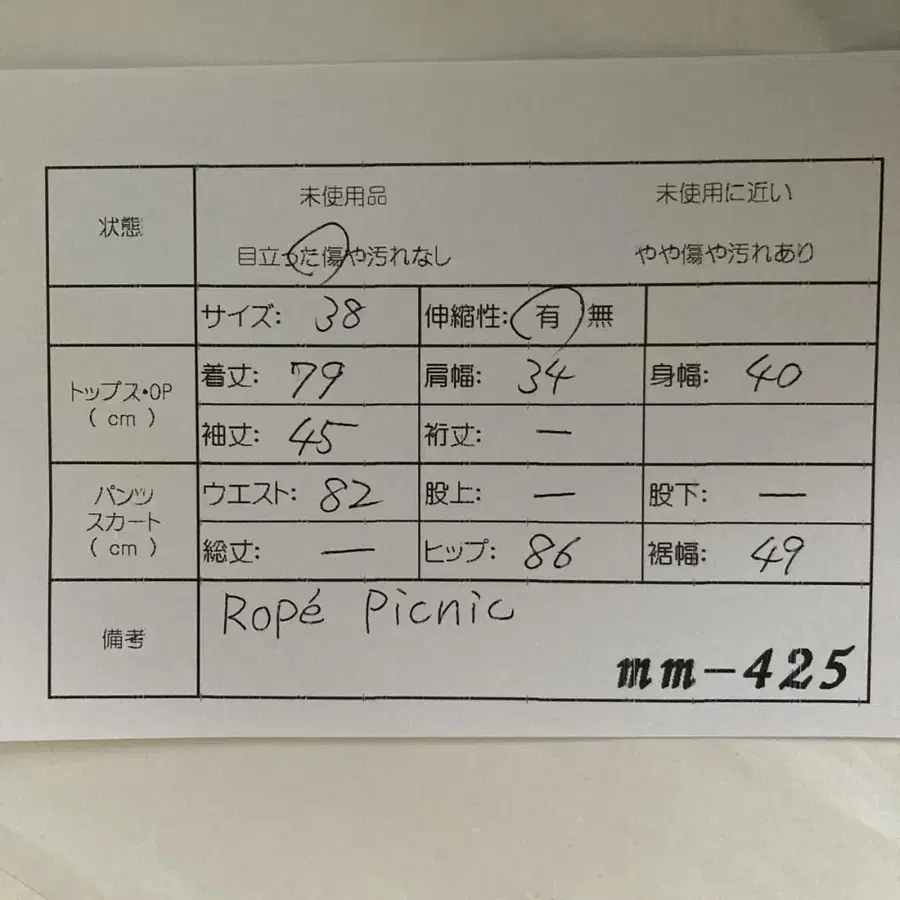 状態
未使用品 未使用に近い
目立った傷や汚れなし やや傷や汚れあり
サイズ: 38 伸縮性: 有 無
トップス・OP
( cm )
着丈: 79 肩幅: 34 身幅: 40
袖丈: 45 裄丈: ー
パンツ
スカート
( cm )
ウエスト: 82 股上: ー 股下: ー
総丈: ー ヒップ: 86 裾幅: 49
備考
Ropé Picnic
mm-425